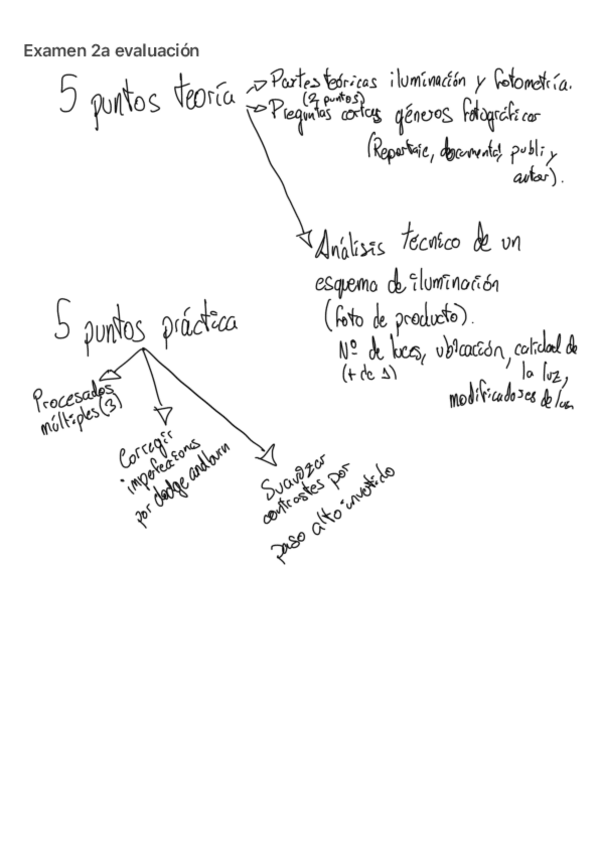 Examen 2a evaluación
5 puntos teoría
Partes teóricas iluminación y fotometría.
(2 puntos)
Preguntas cortas géneros fotográficos
(Reportaje, documental, publi y
autor).
Análisis técnico de un
esquema de iluminación
(foto de producto).
Nº de luces, ubicación, calidad de
(+ de 1)
la luz,
modificadores de luz
5 puntos práctica
Procesados
múltiples (3)
Corregir
imperfecciones
por dodge and burn
Suavizar
contrastes por
paso alto invertido